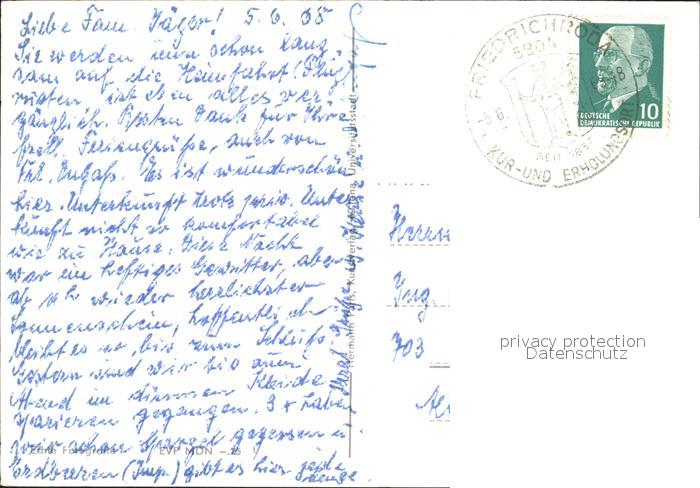 Liebe Fam. Jäger! 5.6.68
Sie werden nun schon lang-
sam auf die Heimfahrt (Flug)
rüsten, ist eben alles ver-
gänglich. Besten Dank für Ihre
Feriengrüße, auch von
Es ist wunderschön
hier. Unterkunft trotz Unter-
kunft nicht so komfortabel
wie zu Hause. Diese Nacht
war ein heftiges Gewitter, aber
ab wieder herrlichster
Sonnenschein, hoffentlich
bleibt es so bis zum Schluß.
Gestern sind wir bis zum
Abend im dünnen Kleide
spazieren gegangen. 3 x haben
wir schon Spargel gegessen u.
Erdbeeren (Imp.) gibt es hier jede
Menge.
Echte Fotografie EVP MDN -.25
Hermann Paris, Kunstverlag, Jena, Universitätsstadt
FRIEDRICHRODA
5904
-5.6.
SEIT 1837
KUR- UND ERHOLUNGSORT
10
DEUTSCHE
DEMOKRATISCHE REPUBLIK
Herrn
Ing.
703
privacy protection
Datenschutz